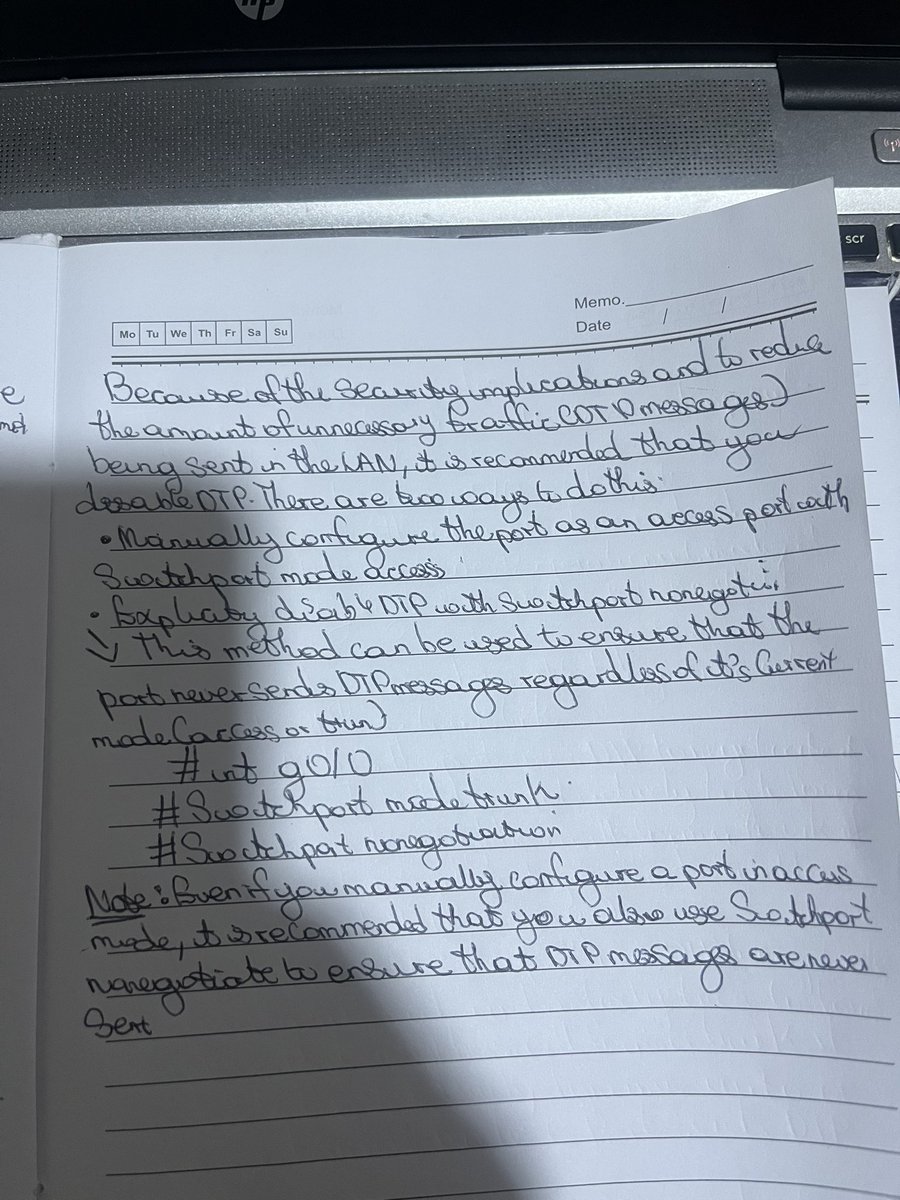 hp
scr
e
Memo.
Mo Tu We Th Fr Sa Su
Date / /
Because of the security implications and to reduce
the amount of unnecessary traffic (DTP messages)
being sent in the LAN, it is recommended that you
dissable DTP. There are two ways to do this:
• Manually configure the port as an access port with
Switchport mode access
• Explicitly disable DTP with switchport nonegoti
↘ This method can be used to ensure that the
port never sends DTP messages regardless of it's current
mode (access or trun)
# int g0/0
# Switchport mode trunk.
# Switchport nonegotiation
Note: Even if you manually configure a port in access
mode, it is recommended that you also use Switchport
nonegotiate to ensure that DTP messages are never
sent